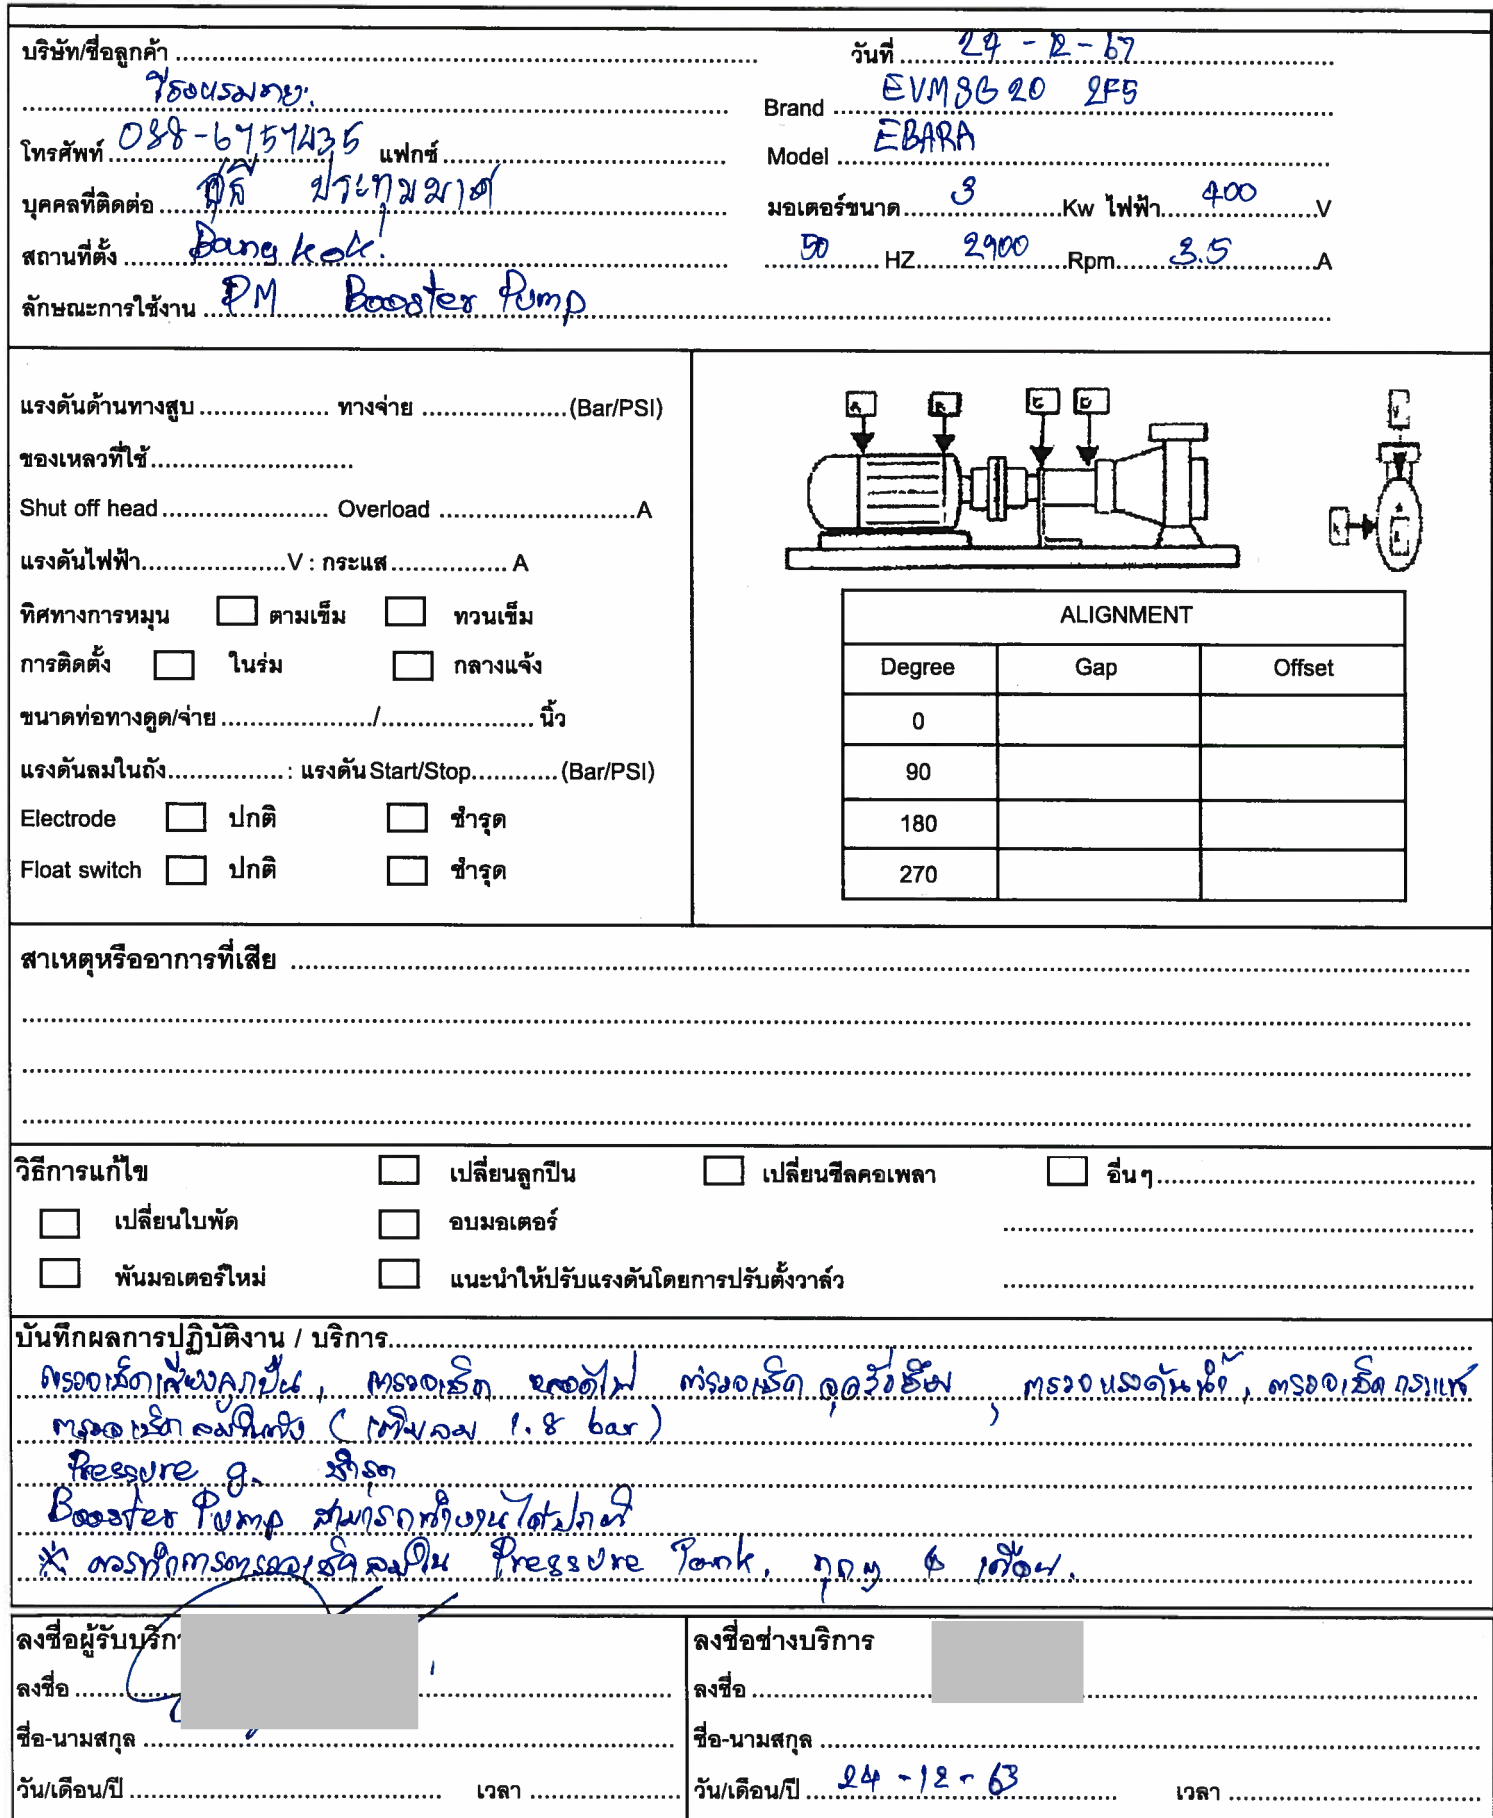 บริษัท/ชื่อลูกค้า วันที่ 24 - 12 - 67
Brand EVMSG 20 2F5
โทรศัพท์ 088-6757435 แฟกซ์ Model EBARA
บุคคลที่ติดต่อ ประทุมมาศ มอเตอร์ขนาด 3 Kw ไฟฟ้า 400 V
สถานที่ตั้ง Bangkok. 50 HZ 2900 Rpm 3.5 A
ลักษณะการใช้งาน PM Booster Pump
แรงดันด้านทางสูบ ทางจ่าย (Bar/PSI)
ของเหลวที่ใช้
Shut off head Overload A
แรงดันไฟฟ้า V : กระแส A
ทิศทางการหมุน ตามเข็ม ทวนเข็ม
การติดตั้ง ในร่ม กลางแจ้ง
ขนาดท่อทางดูด/จ่าย / นิ้ว
แรงดันลมในถัง : แรงดัน Start/Stop (Bar/PSI)
Electrode ปกติ ชำรุด
Float switch ปกติ ชำรุด
ALIGNMENT
Degree Gap Offset
0
90
180
270
สาเหตุหรืออาการที่เสีย
วิธีการแก้ไข เปลี่ยนลูกปืน เปลี่ยนซีลคอเพลา อื่นๆ
เปลี่ยนใบพัด อบมอเตอร์
พันมอเตอร์ใหม่ แนะนำให้ปรับแรงดันโดยการปรับตั้งวาล์ว
บันทึกผลการปฏิบัติงาน / บริการ
ตรวจเช็คเสียงลูกปืน, ตรวจเช็ค หลอดไฟ ตรวจเช็ค จุดรั่วซึม, ตรวจแรงดันน้ำ, ตรวจเช็คกระแส
ตรวจเช็คลมในถัง (เติมลม 1.8 bar)
Pressure g. ชำรุด
Booster Pump สามารถทำงานได้ปกติ
※ ควรทำการตรวจเช็คลมใน Pressure Tank. ทุกๆ 6 เดือน.
ลงชื่อผู้รับบริกา ลงชื่อช่างบริการ
ลงชื่อ ลงชื่อ
ชื่อ-นามสกุล ชื่อ-นามสกุล
วัน/เดือน/ปี เวลา วัน/เดือน/ปี 24 - 12 - 63 เวลา